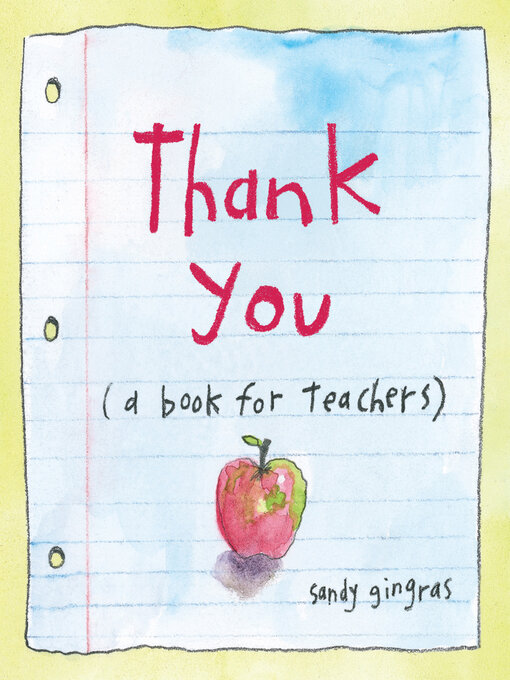 Thank
You
(a book for Teachers)
sandy gingras